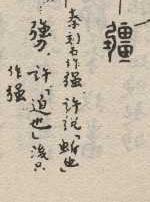 彊
秦刻石作强。許說「蚚也」
強力。許「迫也」後只
作强